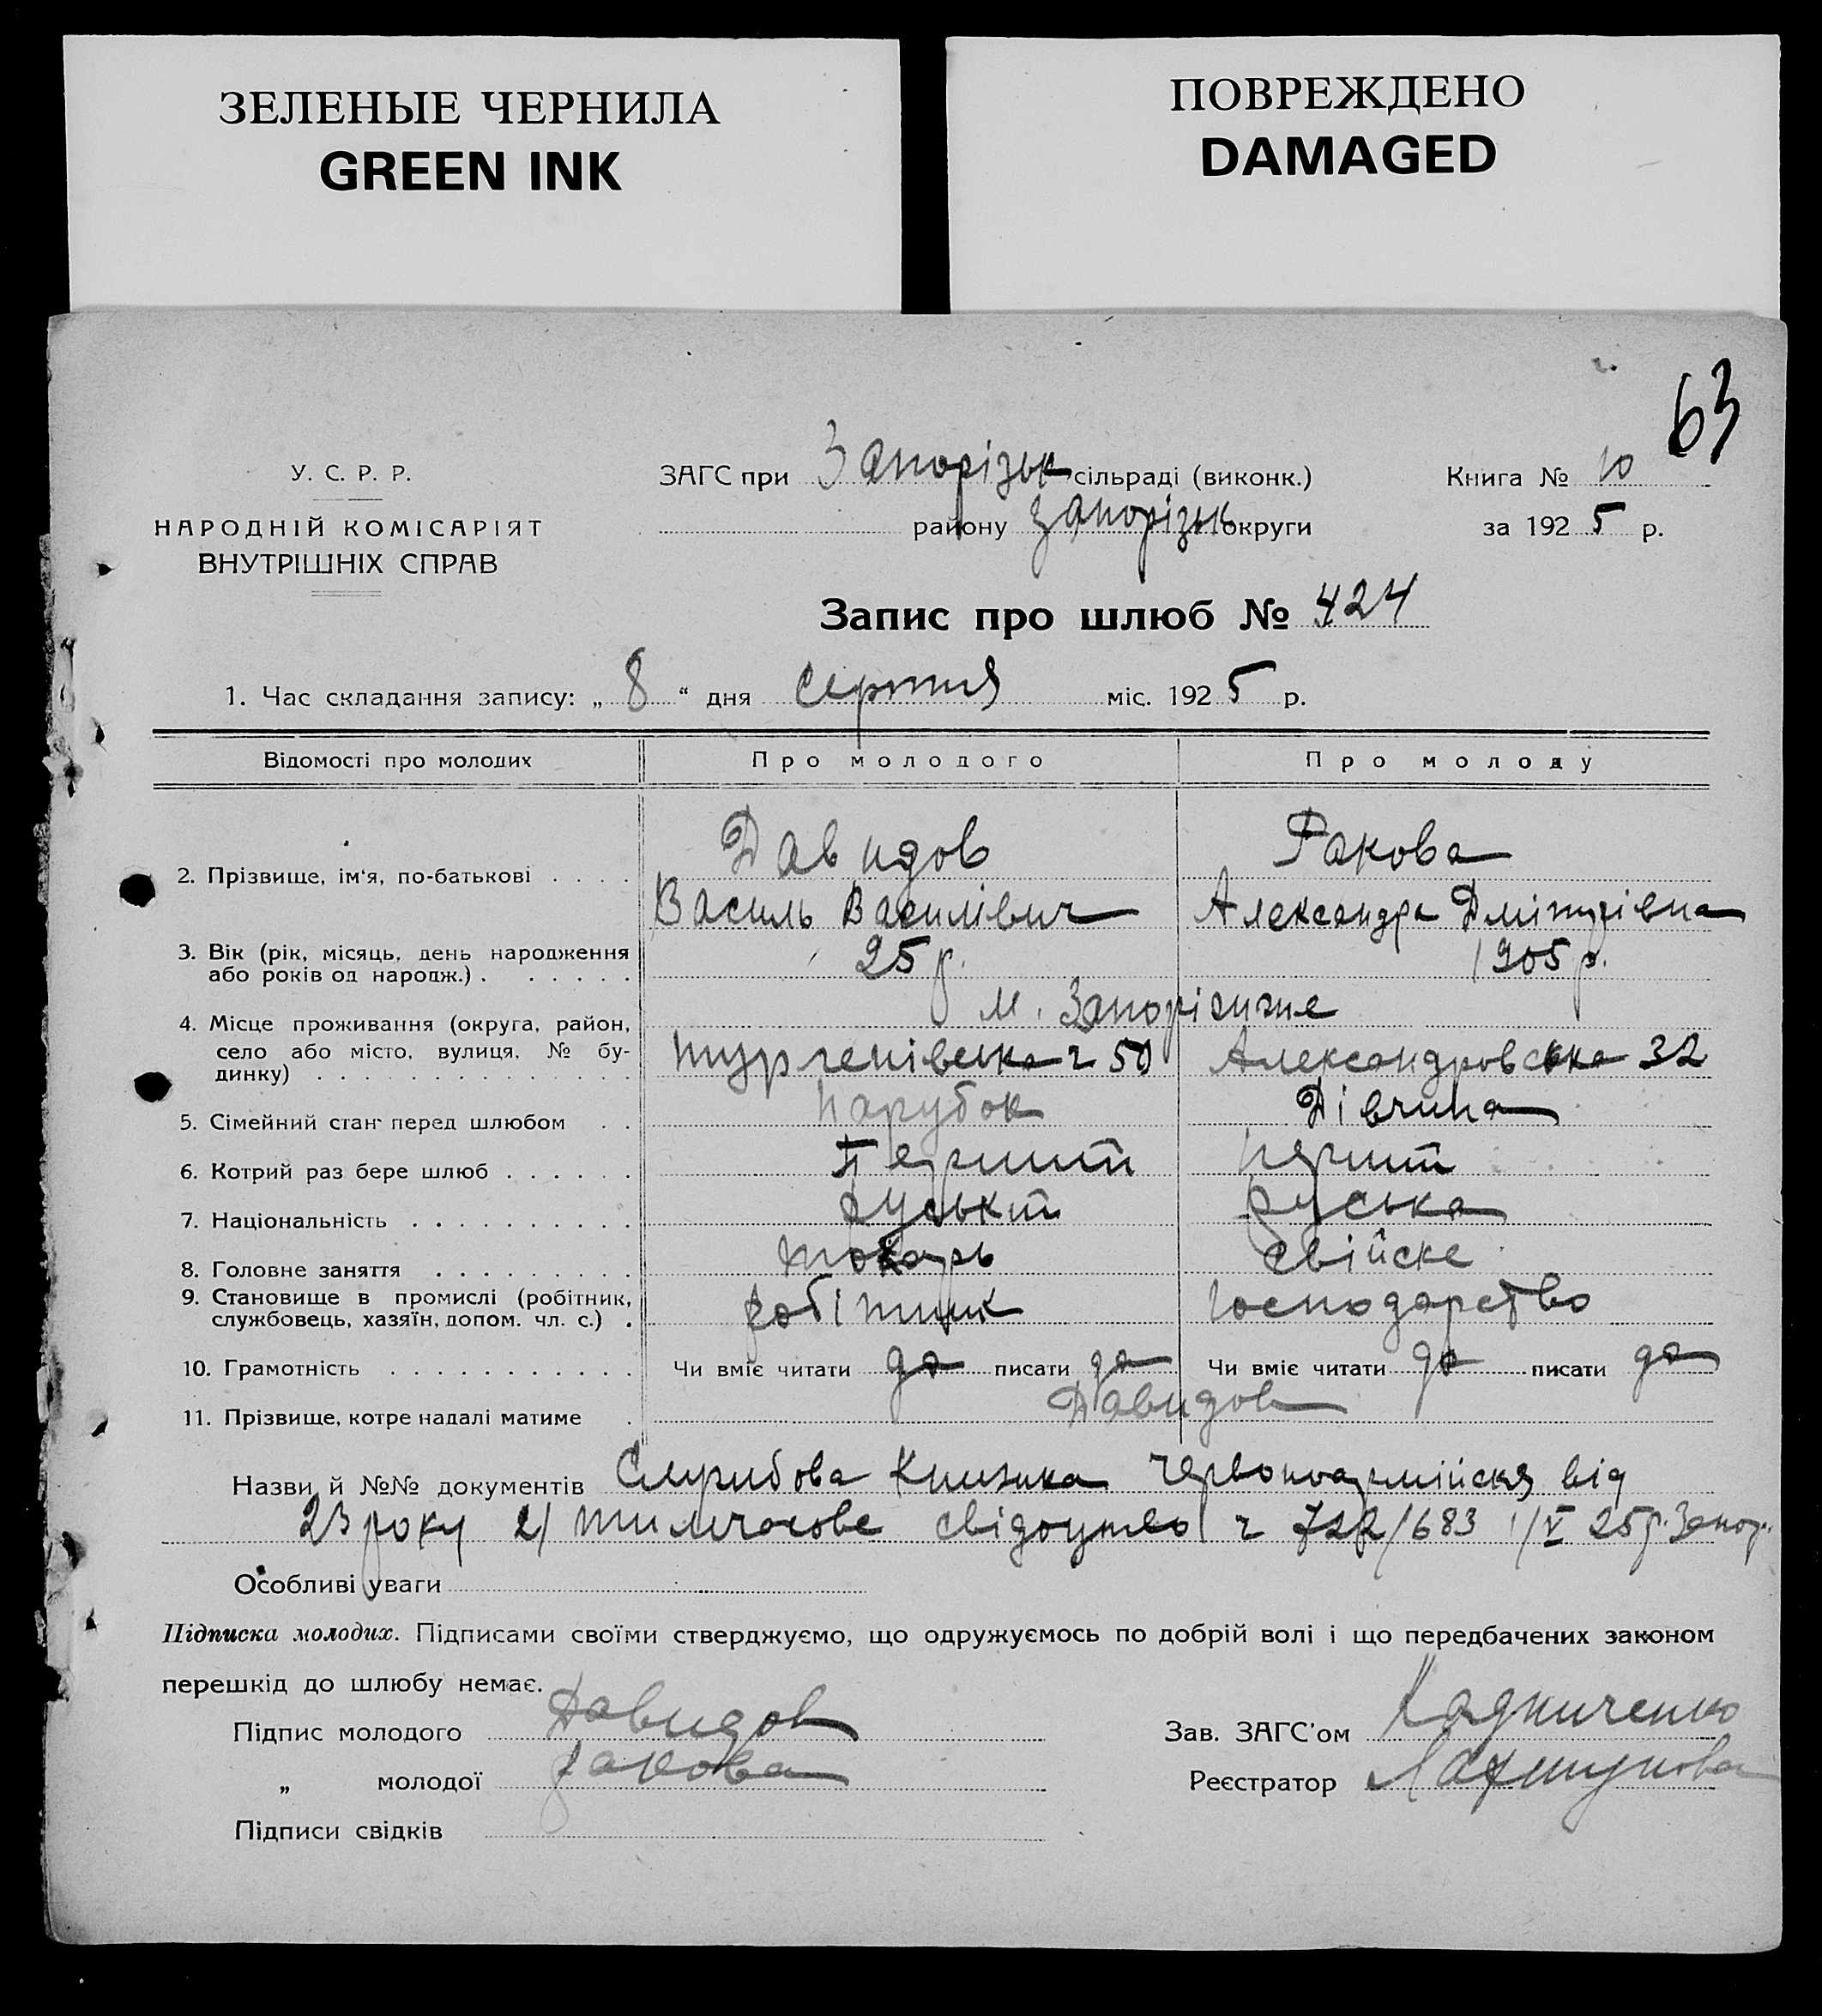 ЗЕЛЕНЫЕ ЧЕРНИЛА
GREEN INK
ПОВРЕЖДЕНО
DAMAGED
63
У. С. Р. Р.
НАРОДНІЙ КОМІСАРІЯТ
ВНУТРІШНІХ СПРАВ
ЗАГС при Запорізьк сільраді (виконк.)
району Запорізьк округи
Книга № 10
за 1925 р.
Запис про шлюб № 424
1. Час складання запису: „ 8 “ дня серпня міс. 1925 р.
Відомості про молодих Про молодого Про молоду
Давидов Ракова
2. Прізвище, ім'я, по-батькові . . . . Василь Василівич Александра Дмітріівна
3. Вік (рік, місяць, день народження
або років од народж.) . . . . . . 25 р. 1905 р.
м. Запоріжжє
4. Місце проживання (округа, район,
село або місто, вулиця, № бу-
динку) . . . . . . . . . . . . . Тургенівська ч 50 Александровська 32
5. Сімейний стан перед шлюбом . . Парубок Дівчина
6. Котрий раз бере шлюб . . . . . . Перший Перший
7. Національність . . . . . . . . . . руський руська
8. Головне заняття . . . . . . . . . токарь свійске
9. Становище в промислі (робітник,
службовець, хазяїн, допом. чл. с.) . робітник господарство
10. Грамотність . . . . . . . . . . . Чи вміє читати да писати да Чи вміє читати да писати да
11. Прізвище, котре надалі матиме . Давидов
Назви й №№ документів Службова Книжка Червоноармійская від
23 року 2/ тимчасове свідоцтво ч 722/683 1/V 25 р. Запор.
Особливі уваги
Підписка молодих. Підписами своїми стверджуємо, що одружуємось по добрій волі і що передбачених законом
перешкід до шлюбу немає.
Підпис молодого Давидов
„ молодої Ракова
Підписи свідків
Зав. ЗАГС'ом
Реєстратор